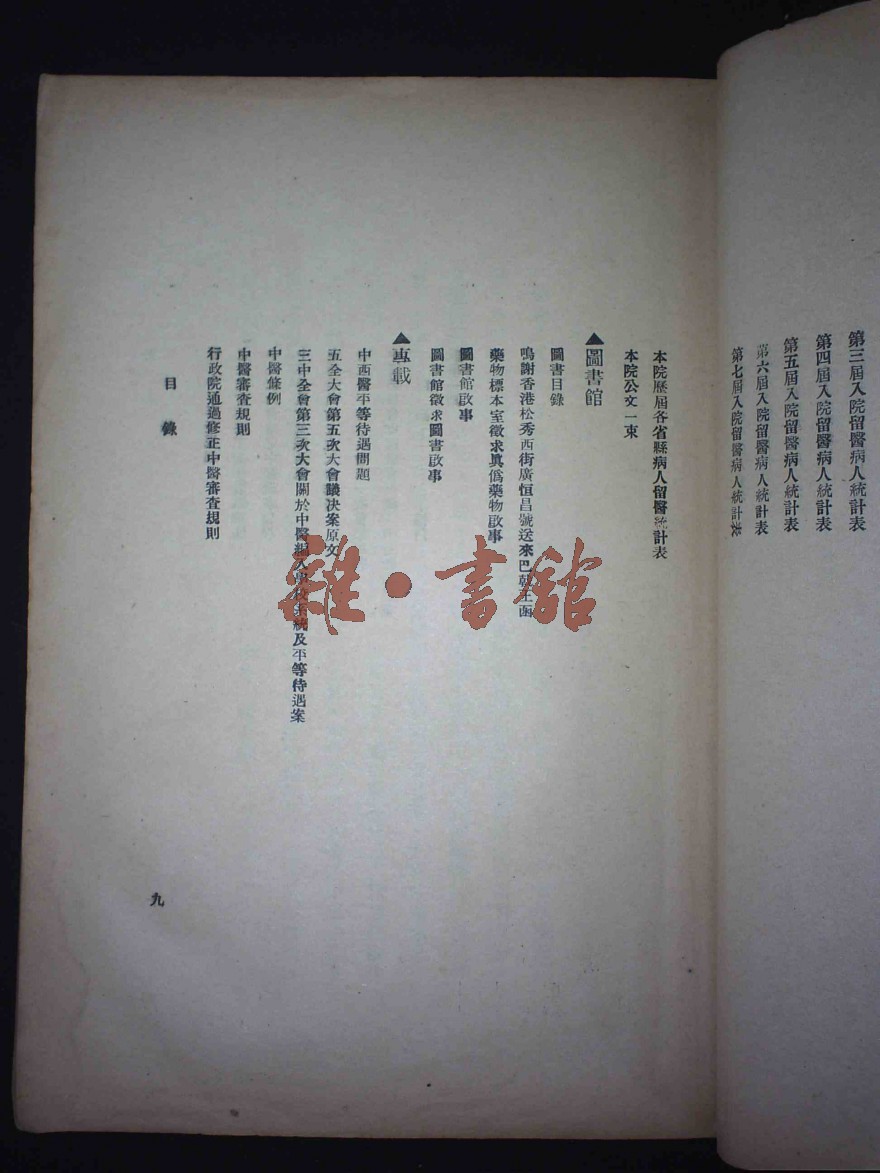 第三屆入院留醫病人統計表
第四屆入院留醫病人統計表
第五屆入院留醫病人統計表
第六屆入院留醫病人統計表
第七屆入院留醫病人統計表
本院歷屆各省縣病人留醫統計表
本院公文一束
▲圖書館
圖書目錄
鳴謝香港松秀西街廣恒昌號送來巴戟王函
藥物標本室徵求眞僞藥物啟事
圖書館啟事
圖書館徵求圖書啟事
▲專載
中西醫平等待遇問題
五全大會第五次大會議决案原文
三中全會第三次大會關於中醫編入學校系統及平等待遇案
中醫條例
中醫審查規則
行政院通過修正中醫審查規則
目錄
九
雜·書舘